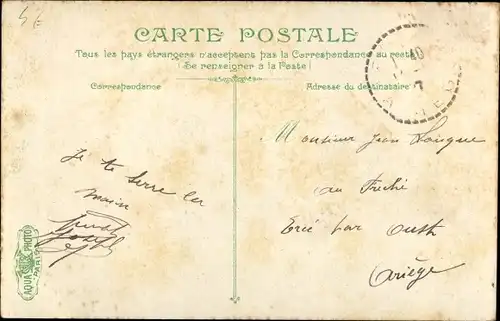 CARTE POSTALE
Tous les pays étrangers n'acceptent pas la Correspondance au recto
(Se renseigner à la Poste)
Correspondance
Adresse du destinataire
10
7
Je te serre la
main
Joseph
Monsieur Jean
au
Ercé par Oust
Ariège
AQUA PHOTO
PARIS